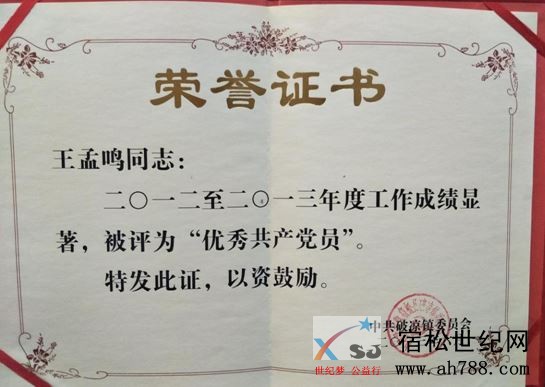 荣誉证书
王孟鸣同志：
二〇一二至二〇一三年度工作成绩显
著，被评为“优秀共产党员”。
特发此证，以资鼓励。
中共破凉镇委员会
XSJ
世纪梦 公益行
宿松世纪网
www.ah788.com